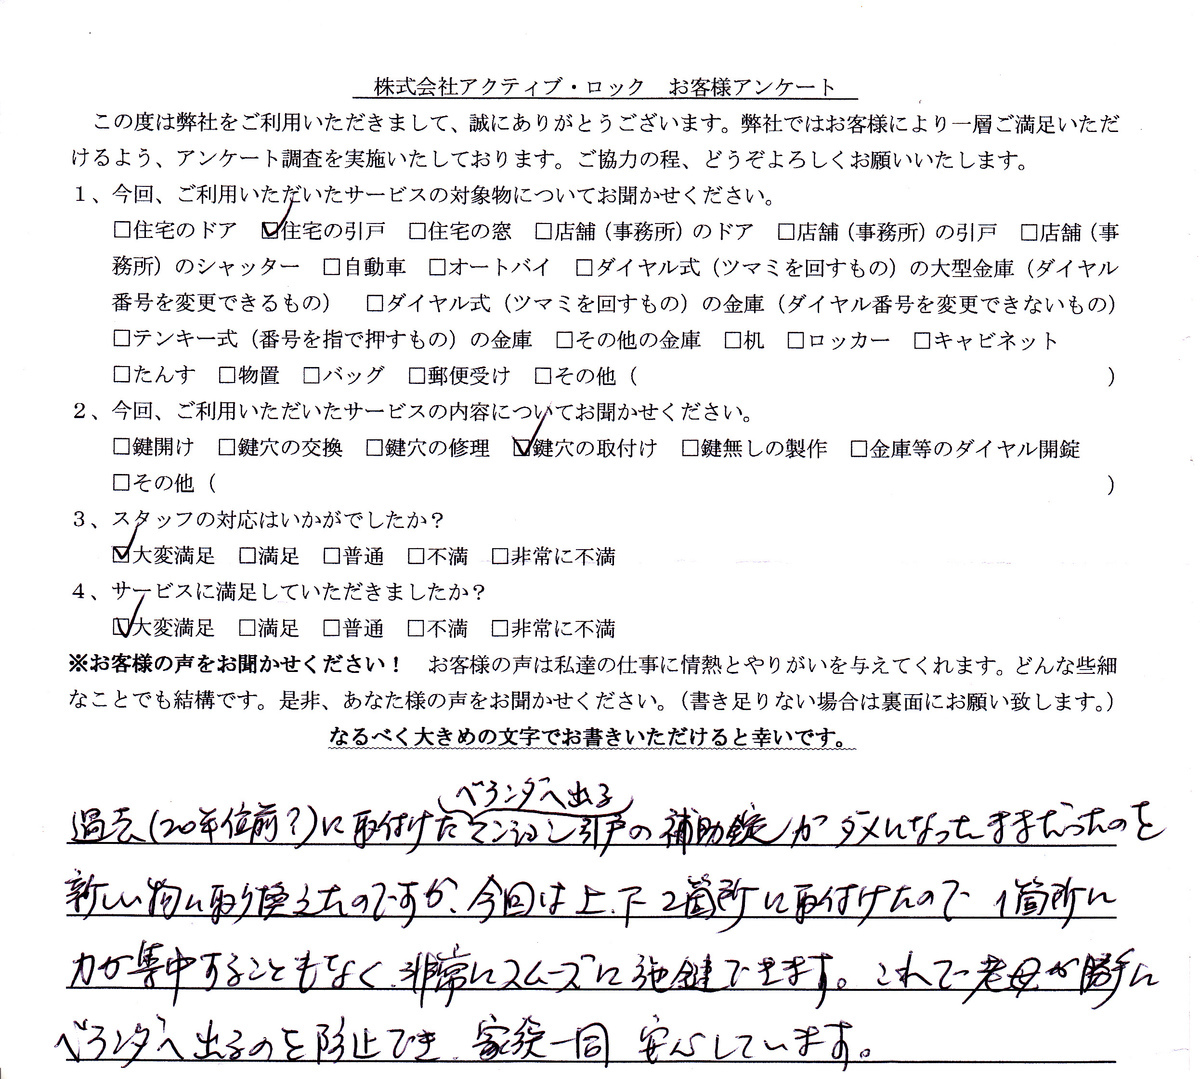 株式会社アクティブ・ロック　お客様アンケート
この度は弊社をご利用いただきまして、誠にありがとうございます。弊社ではお客様により一層ご満足いただ
けるよう、アンケート調査を実施いたしております。ご協力の程、どうぞよろしくお願いいたします。
１、今回、ご利用いただいたサービスの対象物についてお聞かせください。
□住宅のドア　☑住宅の引戸　□住宅の窓　□店舗（事務所）のドア　□店舗（事務所）の引戸　□店舗（事
務所）のシャッター　□自動車　□オートバイ　□ダイヤル式（ツマミを回すもの）の大型金庫（ダイヤル
番号を変更できるもの）　□ダイヤル式（ツマミを回すもの）の金庫（ダイヤル番号を変更できないもの）
□テンキー式（番号を指で押すもの）の金庫　□その他の金庫　□机　□ロッカー　□キャビネット
□たんす　□物置　□バッグ　□郵便受け　□その他（　　　）
２、今回、ご利用いただいたサービスの内容についてお聞かせください。
□鍵開け　□鍵穴の交換　□鍵穴の修理　☑鍵穴の取付け　□鍵無しの製作　□金庫等のダイヤル開錠
□その他（　　　）
３、スタッフの対応はいかがでしたか？
☑大変満足　□満足　□普通　□不満　□非常に不満
４、サービスに満足していただきましたか？
☑大変満足　□満足　□普通　□不満　□非常に不満
※お客様の声をお聞かせください！　お客様の声は私達の仕事に情熱とやりがいを与えてくれます。どんな些細
なことでも結構です。是非、あなた様の声をお聞かせください。（書き足りない場合は裏面にお願い致します。）
なるべく大きめの文字でお書きいただけると幸いです。
ベランダへ出る
過去（20年位前？）に取付けたマンション引戸の補助錠がダメになったままだったのを
新しい物に取り換えたのですが、今回は上、下2箇所に取付けたので1箇所に
力が集中することもなく、非常にスムーズに施鍵できます。これで老母が勝手に
ベランダへ出るのを防止でき、家族一同 安心しています。